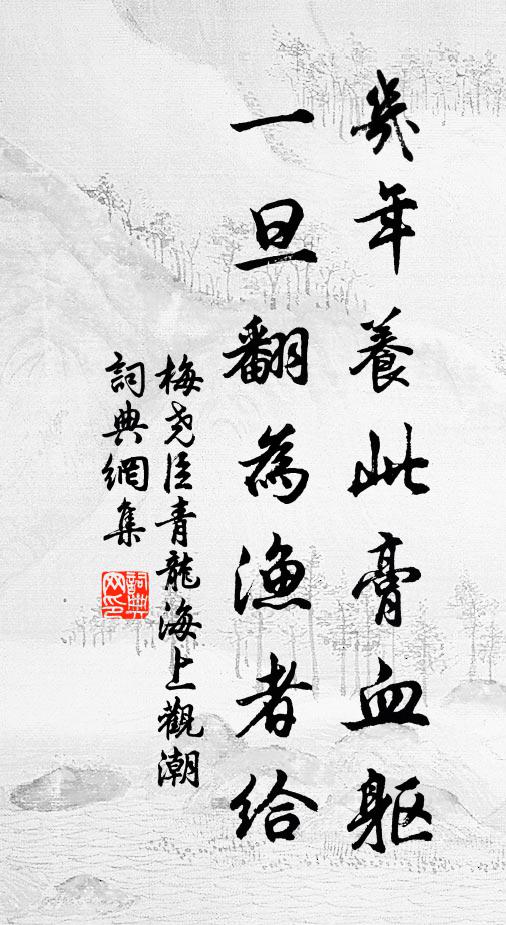 幾年養此膏血軀
一旦翻為漁者給
梅尧臣青龍海上觀潮
詞典網集
詞典
网印